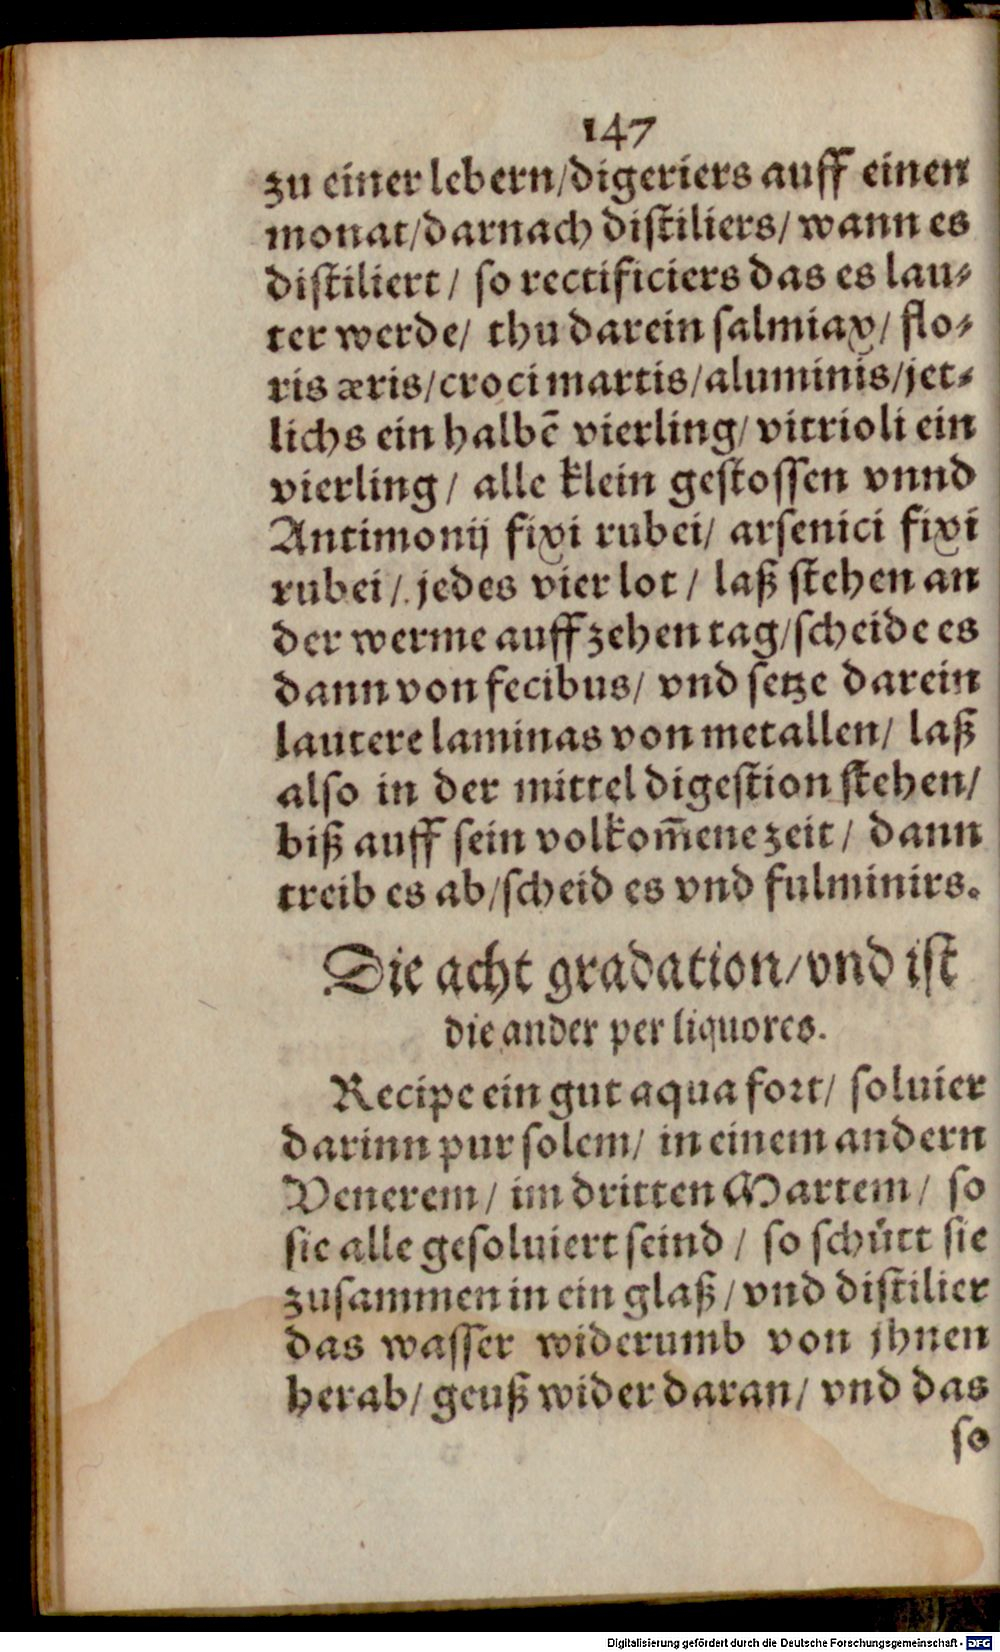 147
zu einer lebern/digeriers auff einen
monat/darnach distiliers/ wann es
distiliert/ so rectificiers das es lau⸗
ter werde/ thu darein salmiax/ flo⸗
ris æris/croci martis/aluminis/jet⸗
lichs ein halbē vierling/ vitrioli ein
vierling/ alle klein gestossen vnnd
Antimonij fixi rubei/ arsenici fixi
rubei/ jedes vier lot/ laß stehen an
der werme auff zehen tag/scheide es
dann von fecibus/ vnd setze darein
lautere laminas von metallen/ laß
also in der mittel digestion stehen/
biß auff sein volkom̄ene zeit/ dann
treib es ab/scheid es vnd fulminirs.
Die acht gradation/vnd ist
die ander per liquores.
Recipe ein gut aqua fort/ soluier
darinn pur solem/ in einem andern
Venerem/ im dritten Martem/ so
sie alle gesoluiert seind/ so schůtt sie
zusammen in ein glaß/vnd distilier
das wasser widerumb von jhnen
herab/ geuß wider daran/ vnd das
so
Digitalisierung gefördert durch die Deutsche Forschungsgemeinschaft - DFG